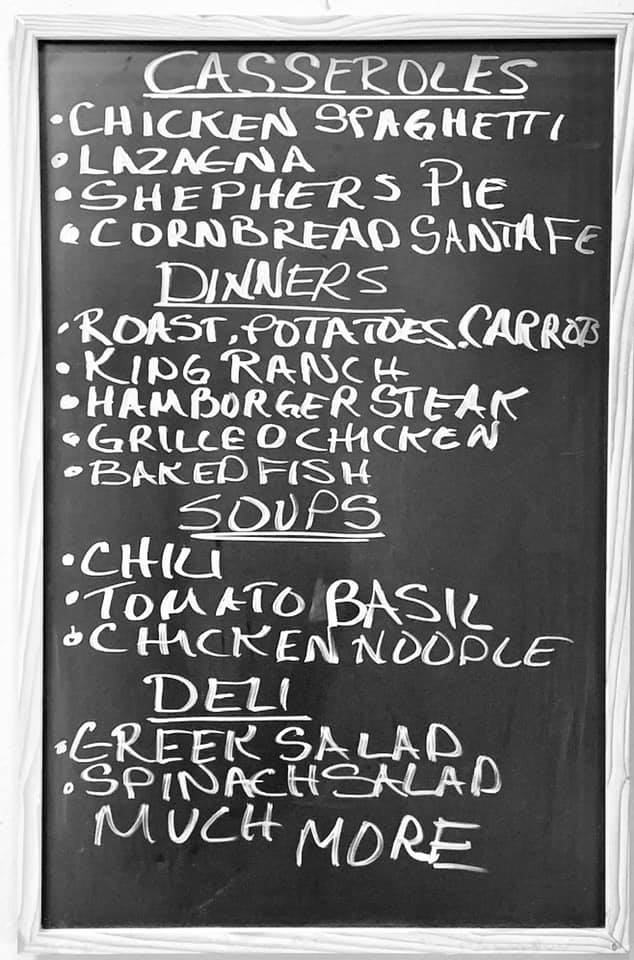 CASSEROLES
•CHICKEN SPAGHETTI
•LAZAGNA
•SHEPHERS PIE
•CORNBREAD SANTA FE
DINNERS
•ROAST, POTATOES, CARROTS
•KING RANCH
•HAMBORGER STEAK
•GRILLED CHICKEN
•BAKED FISH
SOUPS
•CHILI
•TOMATO BASIL
•CHICKEN NOODLE
DELI
•GREEK SALAD
•SPINACH SALAD
MUCH MORE